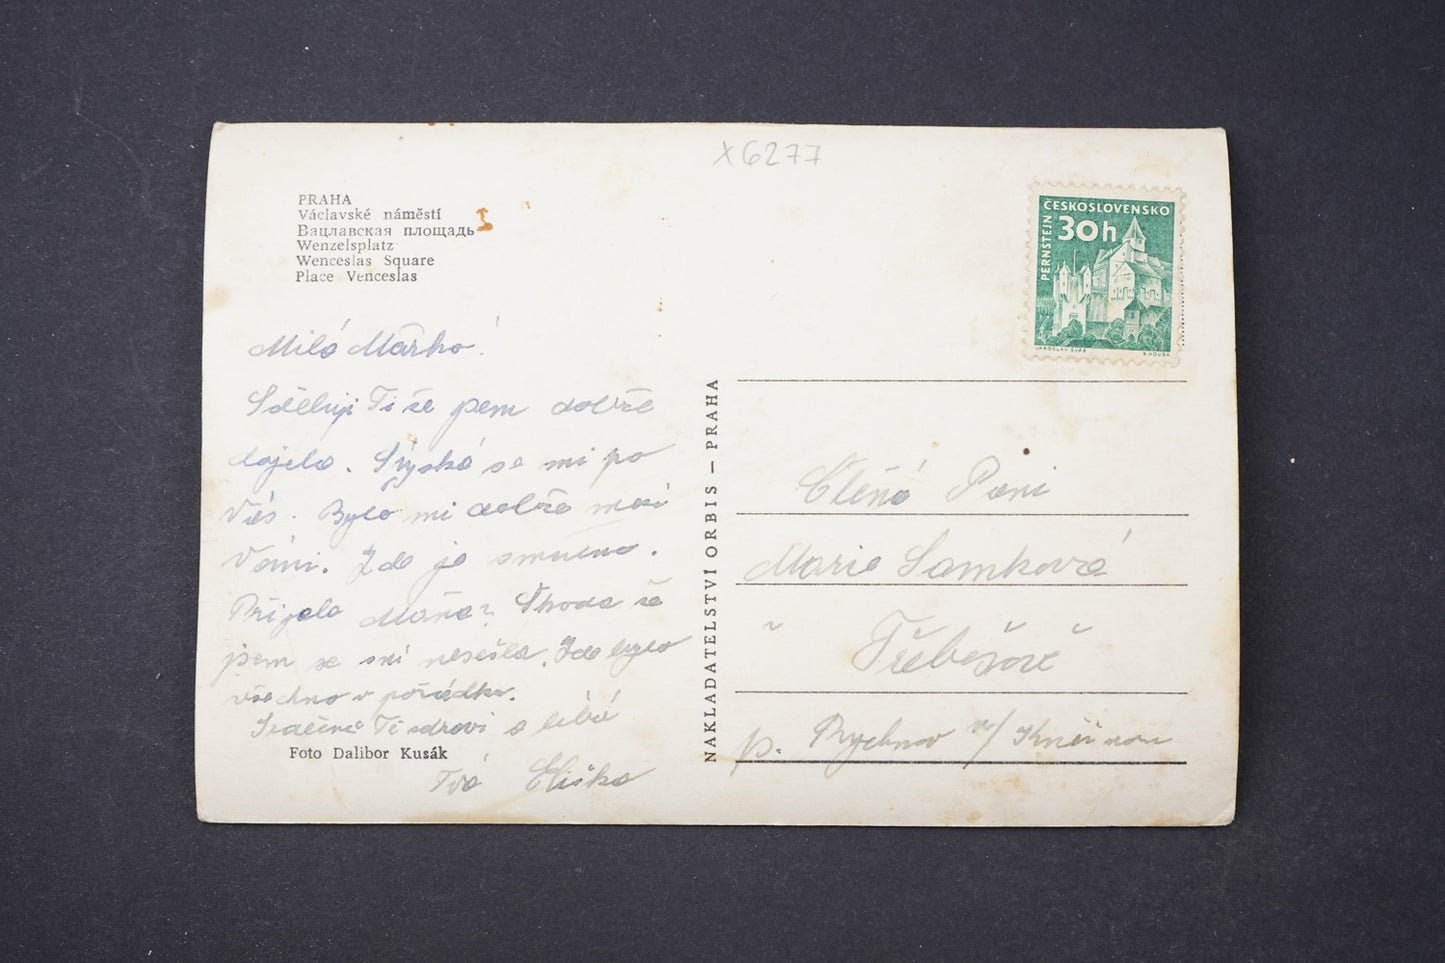 x6277
PRAHA
Václavské náměstí
Вацлавская площадь
Wenzelsplatz
Wenceslas Square
Place Venceslas
ČESKOSLOVENSKO
30h
PERNŠTEJN
JAROSLAV ŠVÁB
Milá Mařko!
Sděluji Ti že jsem dobře
dojela. Stýská se mi po
Vás. Bylo mi dobře mezi
Vámi. Zde je smutno.
Přijela Máňa? Škoda že
jsem se s ní nesešla. Zde bylo
všechno v pořádku.
Srdečně Tě zdraví a líbá
Foto Dalibor Kusák
Tvá Eliška
NAKLADATELSTVÍ ORBIS – PRAHA
Ctěná Paní
Marie Samková
Třebešově
p. Rychnov n/Kněžnou